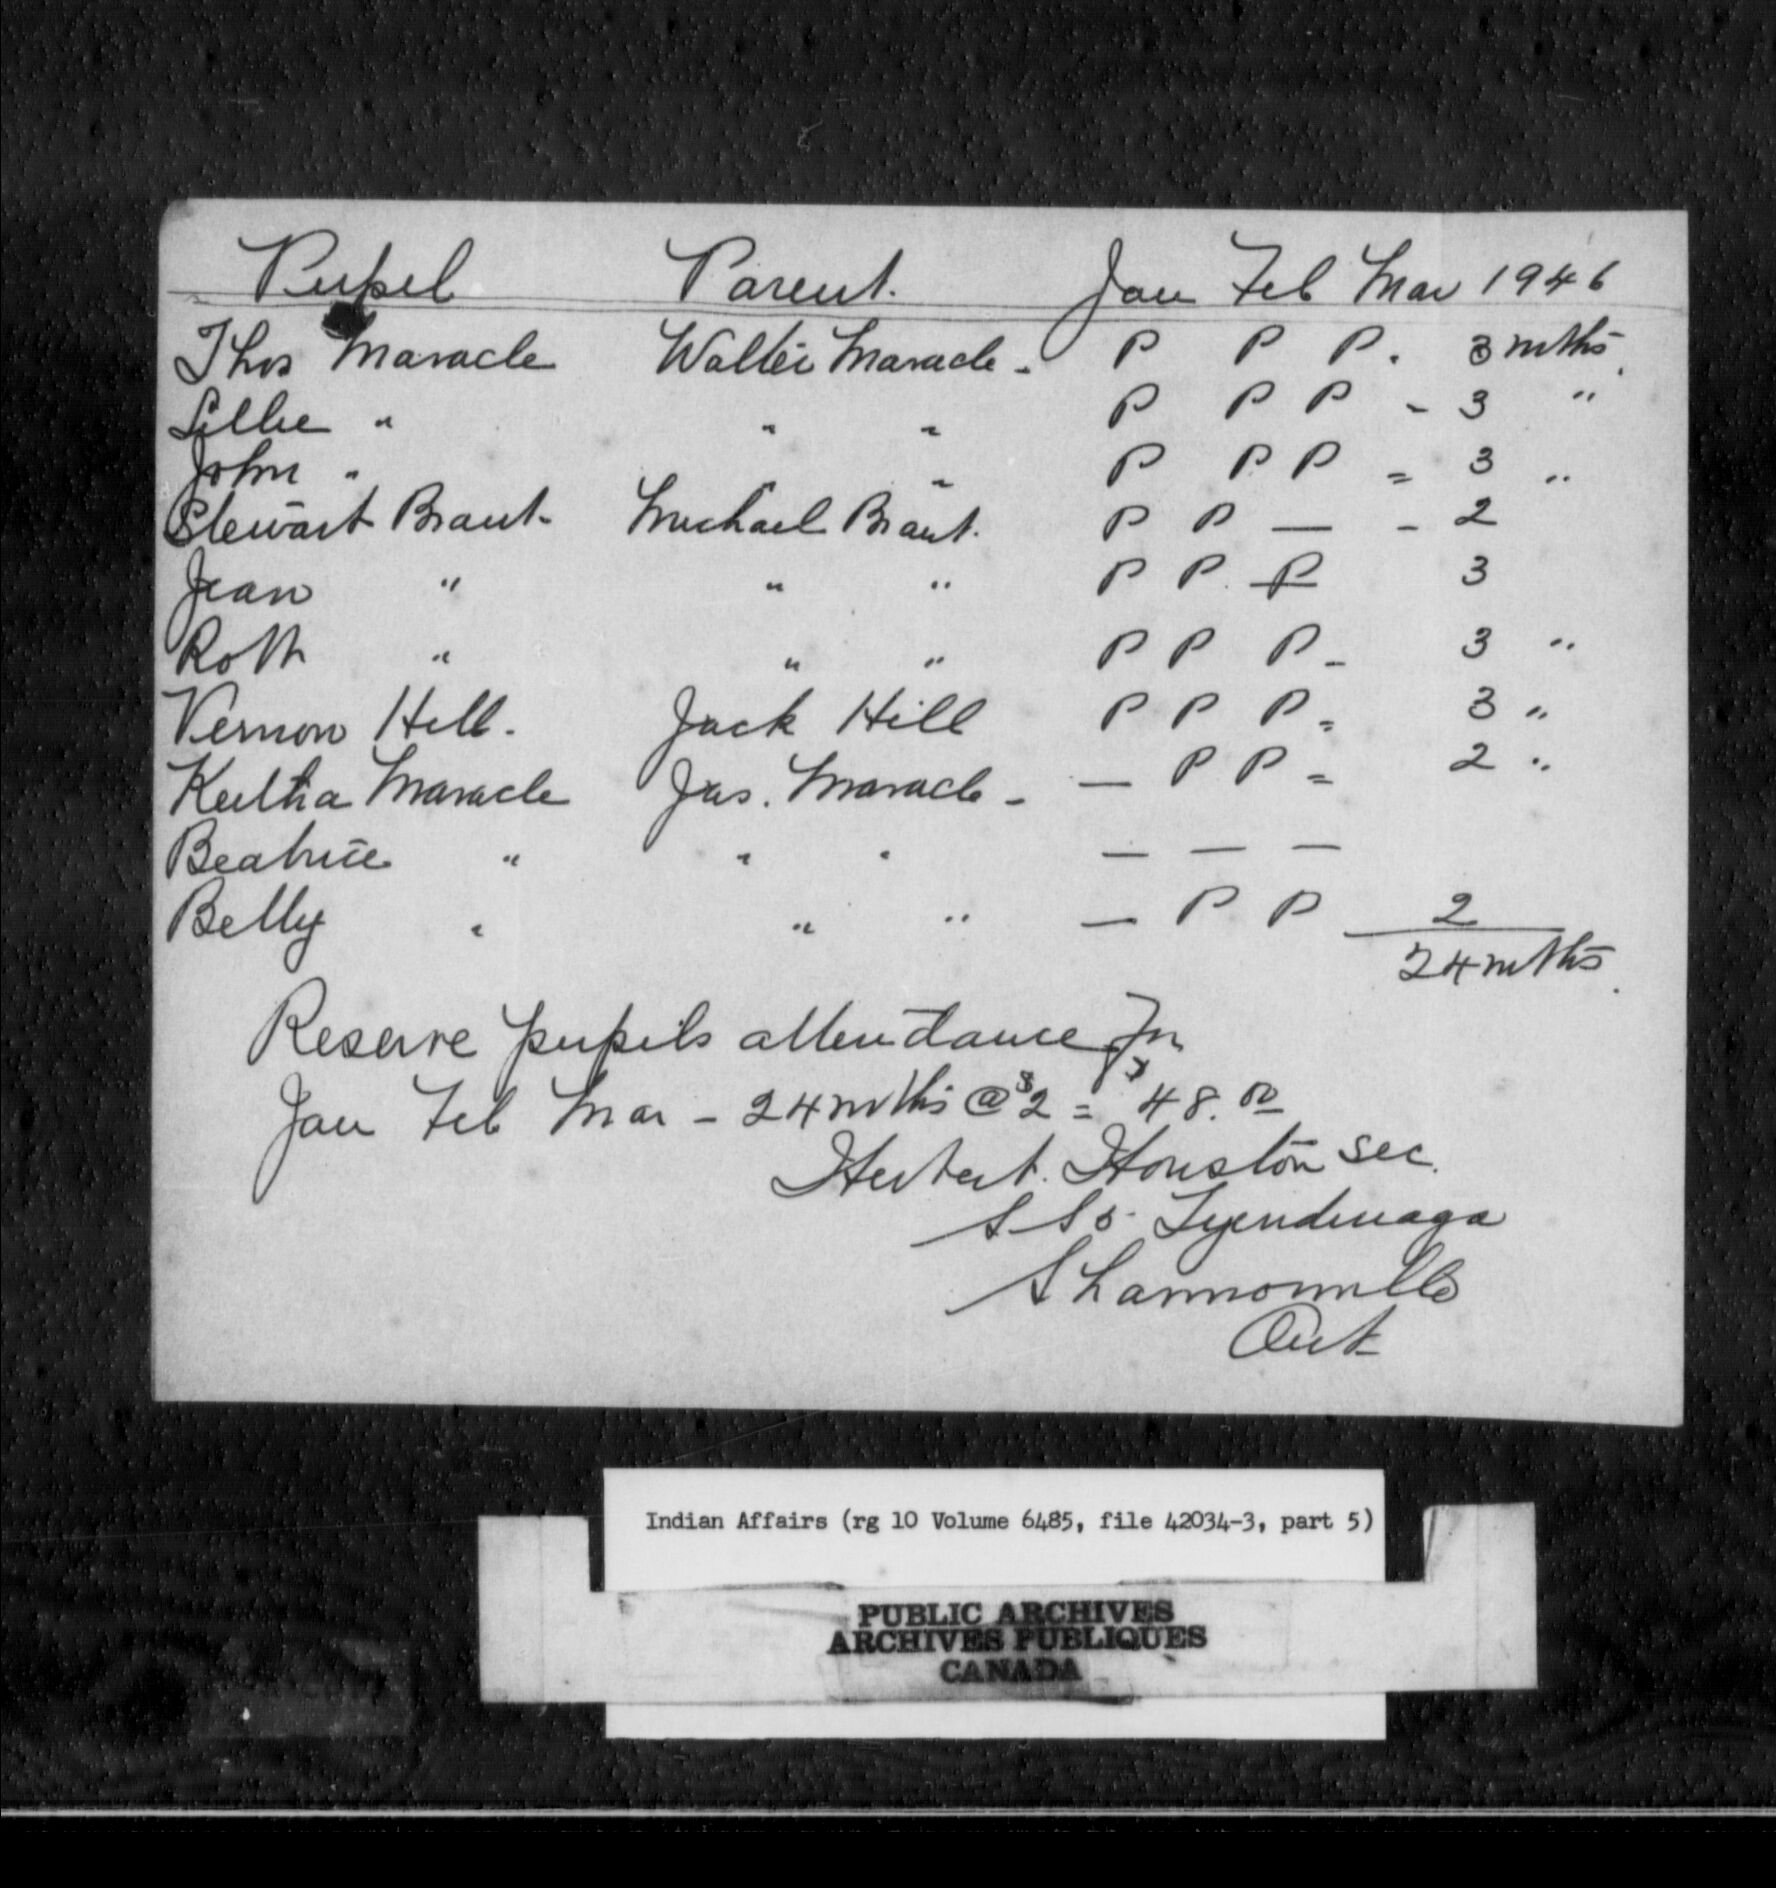 Pupil Parent. Jan Feb Mar 1946
Thos Maracle Walter Maracle - P P P. 3 mths.
Lillie " " " P P P - 3 "
John " " " P P P = 3 "
Stewart Brant - Michael Brant. P P — - 2
Jean " " " P P P 3
Roth " " " P P P - 3 "
Vernon Hill. Jack Hill P P P = 3 "
Keitha Maracle Jas. Maracle - — P P = 2 "
Beatrice " " " — — —
Betty " " " — P P 2
24 mths.
Reserve pupils attendance for
Jan Feb Mar - 24 mths @ $2 = $48.00
Herbert Houston Sec.
S S 5 Tyendinaga
Shannonville
Ont
Indian Affairs (rg 10 Volume 6485, file 42034-3, part 5)
PUBLIC ARCHIVES
ARCHIVES PUBLIQUES
CANADA